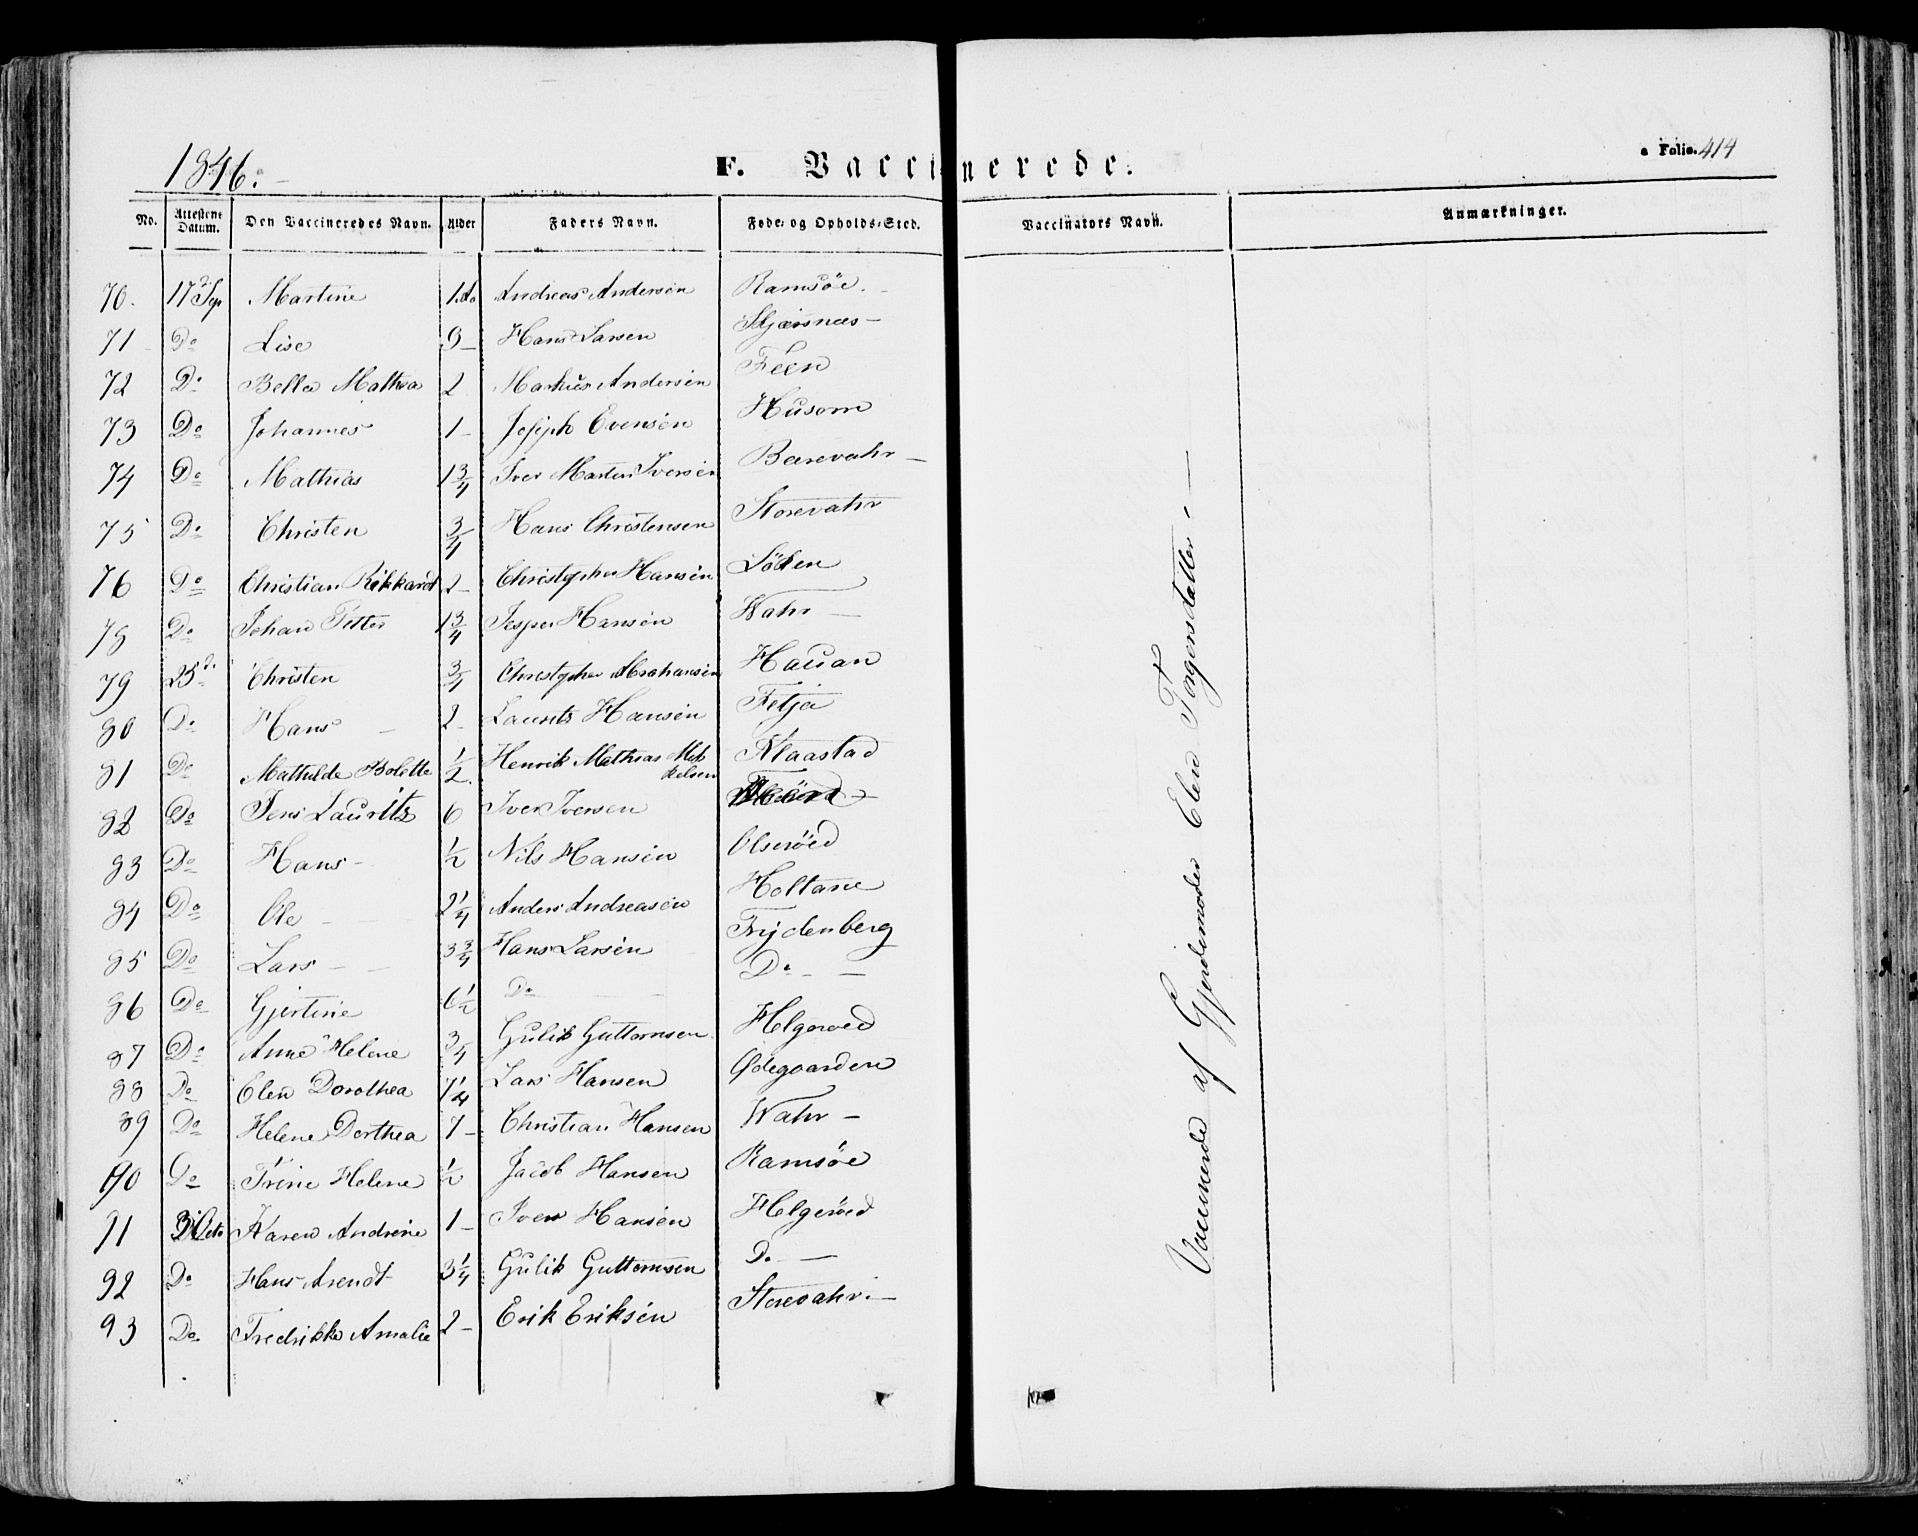 1846.
F. Vaccinerede.
Folio. 414
No. Attestens Datum. Den Vaccineredes Navn. Alder Faders Navn. Føde- og Opholds-Sted. Vaccinators Navn. Anmærkninger.
70. 17 Sep Martine 1 Ao Andreas Andersen Ramsöe.
71 Do Lise 9 Hans Larsen
72 Do Bella Mathea 2 Markus Andersen Feen
73 Do Johannes 1 Joseph Evensen Husom
74 Do Mathias 1 3/4 Iver Marten Iversen Barevahr
75 Do Christen 3/4 Hans Christensen Storevahr
76 Do Christian Rikkardt 2 Christopher Hansen
78 Do Johan Petter 1 3/4 Jesper Hansen Wahr
79 25 Christen 3/4 Christopher Abrahansen Hauan
80 Do Hans 2 Laurits Hansen Fetja
81 Do Mathilde Bolette 1/2 Henrik Mathias Mik
kelsen Klaastad
82 Do Jens Lauritz 6 Iver Iversen
83 Do Hans 1/2 Nils Hansen Olseröed
84 Do Ole 2 1/4 Anders Andreasen Holtane
85 Do Lars 3 3/4 Hans Larsen Frydenberg
86 Do Gjertine 6 1/2 Do Do
87 Do Anne Helene 3/4 Gulik Guttormsen Helgeroed
88 Do Elen Dorothea 7 1/4 Lars Hansen Ødegaarden
89 Do Helene Dorthea 7 Christian Hansen Wahr
90 Do Trine Helene 1/2 Jacob Hansen Ramsöe
91 Octo Karen Andrine 1 Iver Hansen Helgeröed
92 Do Hans Arendt 3 1/4 Gulik Guttormsen Do
93 Do Fredrikke Amalie 2 Erik Eriksen Storevahr
Vaccinerede af Gjordemoder Elen Torgersdatter